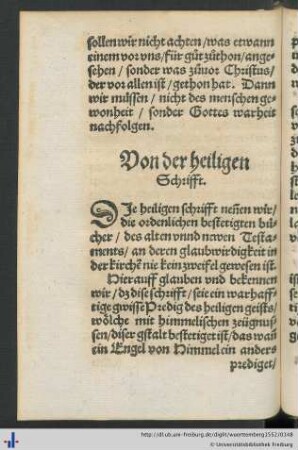 sollen wir nicht achten / was etwann
einem vor vns / für gůt zůthon / ange-
sehen / sonder was zůuor Christus /
der vor allen ist / gethon hat. Dann
wir müssen / nicht des menschen ge-
wonheit / sonder Gottes warheit
nachfolgen.
Von der heiligen
Schrifft.
DJe heiligen schrifft neñen wir /
die ordenlichen bestetigten bü-
cher / des alten vnnd newen Testa-
ments / an deren glaubwirdigkeit in
der kirchē nie kein zweifel gewesen ist.
Hierauff glauben vnd bekennen
wir / dz dise schrifft / seie ein warhaff-
tige gwisse Predig des heiligen geists /
wölche mit himmelischen zeügnus-
sen / diser gstalt bestetiget ist / das wañ
ein Engel von Himmel ein anders
prediget /
http://dl.ub.uni-freiburg.de/diglit/wuerttemberg1552/0348
© Universitätsbibliothek Freiburg